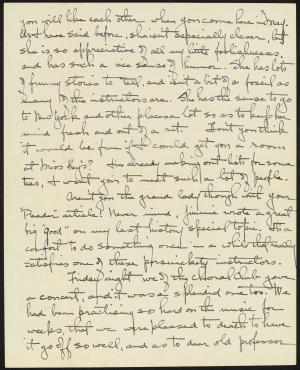 you will like each other when you come here in May.
As I have said before, she isn't especially clever, but
she is so appreciative of all my little foolishnesses,
and has such a nice sense of humor. She has lots
of funny stories to tell, and isn't a bit of a fossil as
many of the instructors are. She has the sense to go
to New York and other places a lot so as to keep her
mind fresh and out of a rut. Don't you think
it would be fun if I could get you a room
at Miss Kay's? I'm already making out lists for some
teas, I want you to meet such a lot of people.
Aren't you the grand lady though with your
Reader article! Never mind, Jimmie wrote a great
big "good" on my last history special topic. It's a
comfort to do something once in a while that really
satisfies one of these persnickety instructors.
Friday night we of the Choral Club gave
a concert, and it was a splendid one too. We
had been practising so hard on the music for
weeks, that we were pleased to death to have
it go off so well, and as to dear old professor